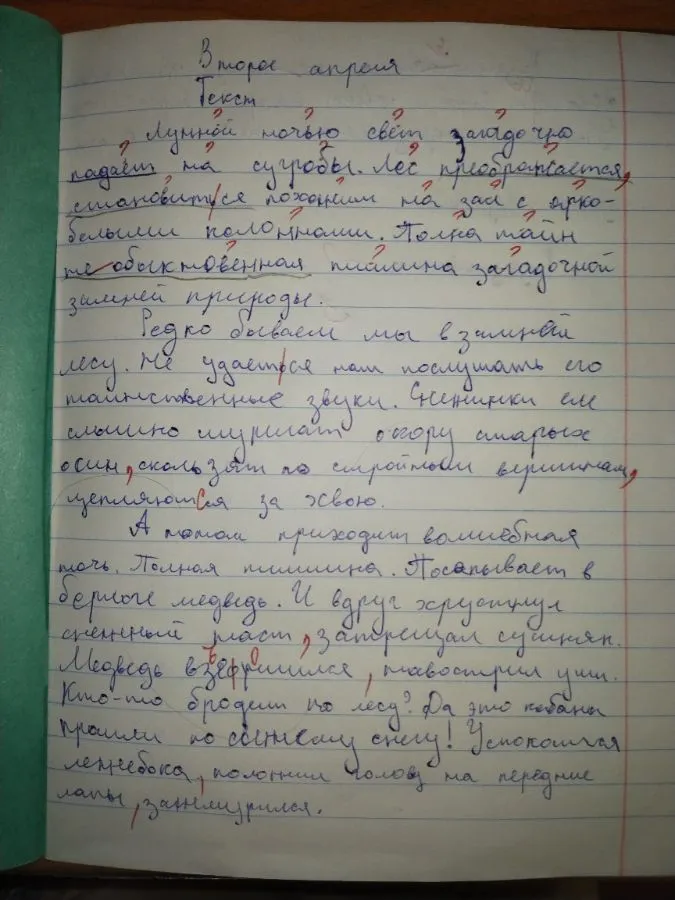 Второе апреля
Текст
Лунной ночью свет загадочно
падает на сугробы. Лес преображается,
становиться похожим на зал с ярко-
белыми колоннами. Полна тайн
не обыкновенная тишина загадочной
зимней природы.
Редко бываем мы в зимней
лесу. Не удаеться нам послушать его
таинственные звуки. Снежинки еле
слышно шуршат о кору старых
осин, скользят по стройным вершинам,
цепляются за хвою.
А потом приходит волшебная
ночь. Полная тишина. Посапывает в
берлоге медведь. И вдруг хрустнул
снежный пласт, затрещал сушняк.
Медведь навострил уши.
Кто-то бродит по лесу? Да это кабаны
прошли по снегу! Успокоился
лежебока, положил голову на передние
лапы, зажмурился.